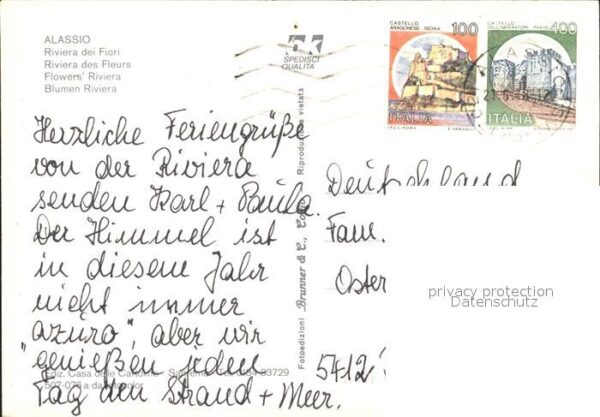 ALASSIO
Riviera dei Fiori
Riviera des Fleurs
Flowers' Riviera
Blumen Riviera
SPEDISCI
QUALITÀ
CASTELLO
ARAGONESE ISCHIA
100
ITALIA
CASTELLO
DELL'IMPERATORE PRATO
400
ITALIA
Herzliche Feriengrüße
von der Riviera
senden Karl + Paula.
Der Himmel ist
in diesem Jahr
nicht immer
"azuro", aber wir
genießen jeden
Tag den Strand + Meer.
Ediz. Casa delle Cartoline
Fotoedizioni Brunner & C.,
Riproduzione vietata
Deutschland
Fam.
Oster
5412
privacy protection
Datenschutz